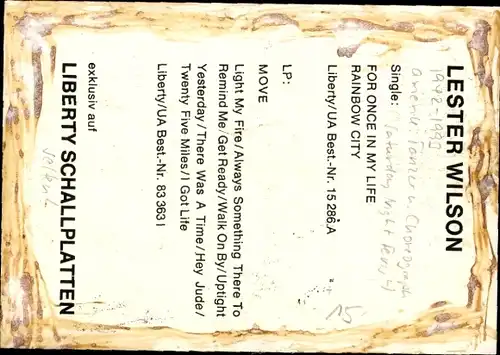 LESTER WILSON
1942-1993
amerik. Tänzer u. Choreograph
Single: (Saturday Night Fever u.)
FOR ONCE IN MY LIFE
RAINBOW CITY
Liberty/UA Best.-Nr. 15 286 A
LP:
MOVE
Light My Fire/Always Something There To
Remind Me/Get Ready/Walk On By/Uptight
Yesterday/There Was A Time/Hey Jude/
Twenty Five Miles/I Got Life
Liberty/UA Best.-Nr. 83 363 I
15
exklusiv auf
LIBERTY SCHALLPLATTEN